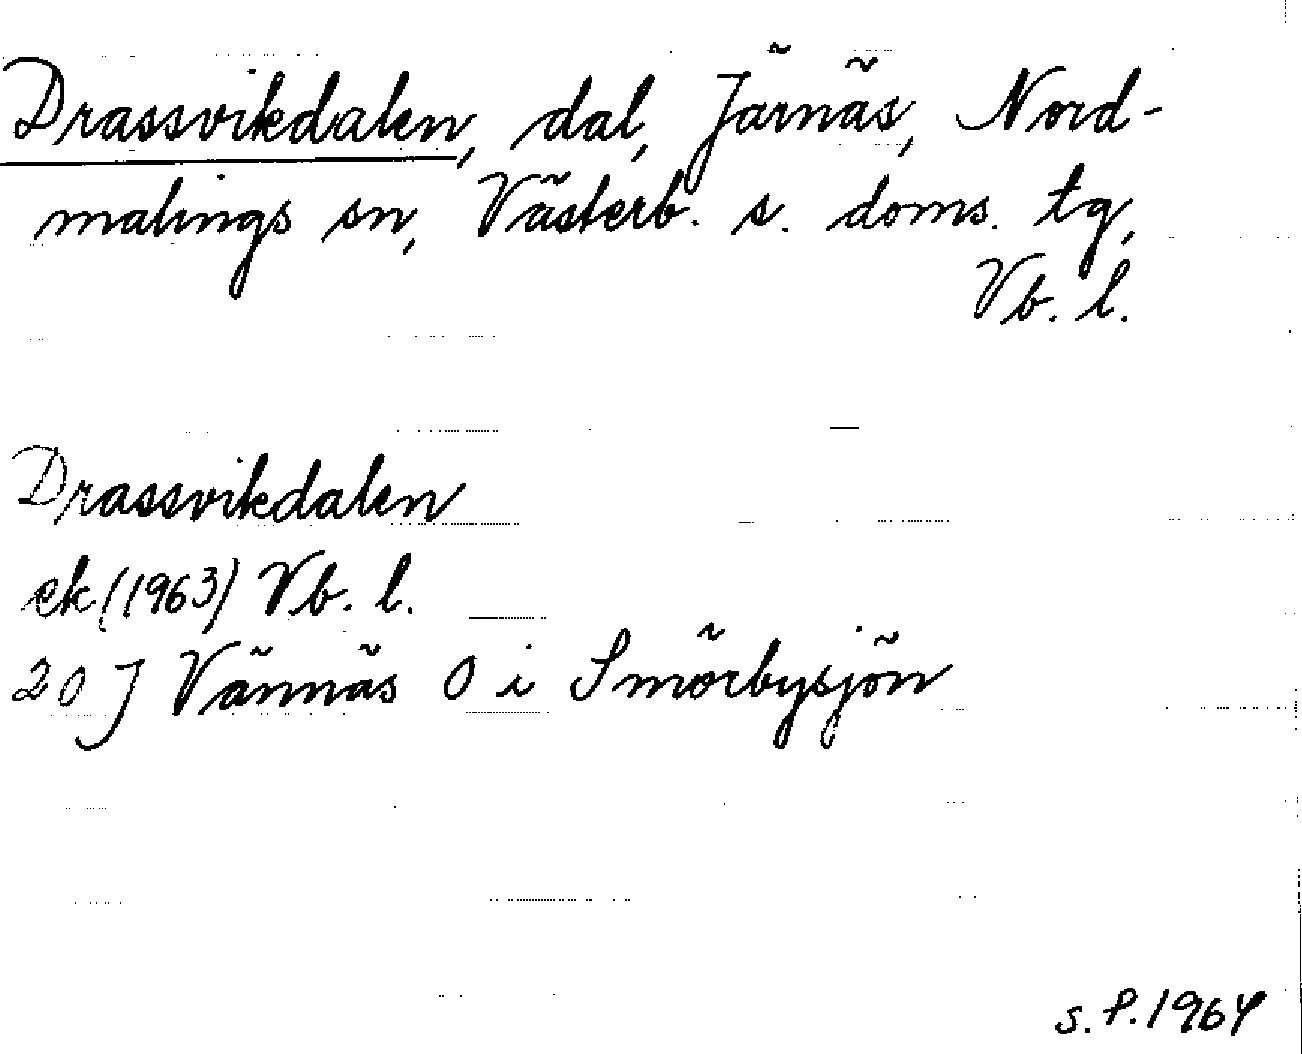 Drassvikdalen, dal, Järnäs, Nord-
malings sn, Västerb. s. doms. tg,
Vb. l.
Drassvikdalen
ek (1963) Vb. l.
20 J Vännäs O i Smörbysjön
s. P. 1964